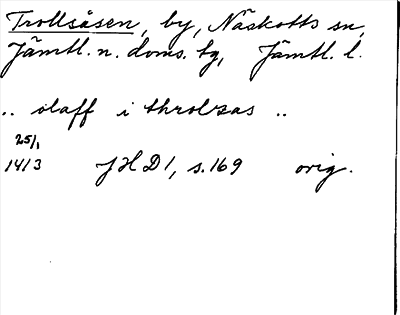 Trollsåsen, by, Näskotts sn,
Jämtl. n. doms. tg, Jämtl. l.
.. olaff i throlzas ..
25/1
1413 JHD 1, s. 169 orig.